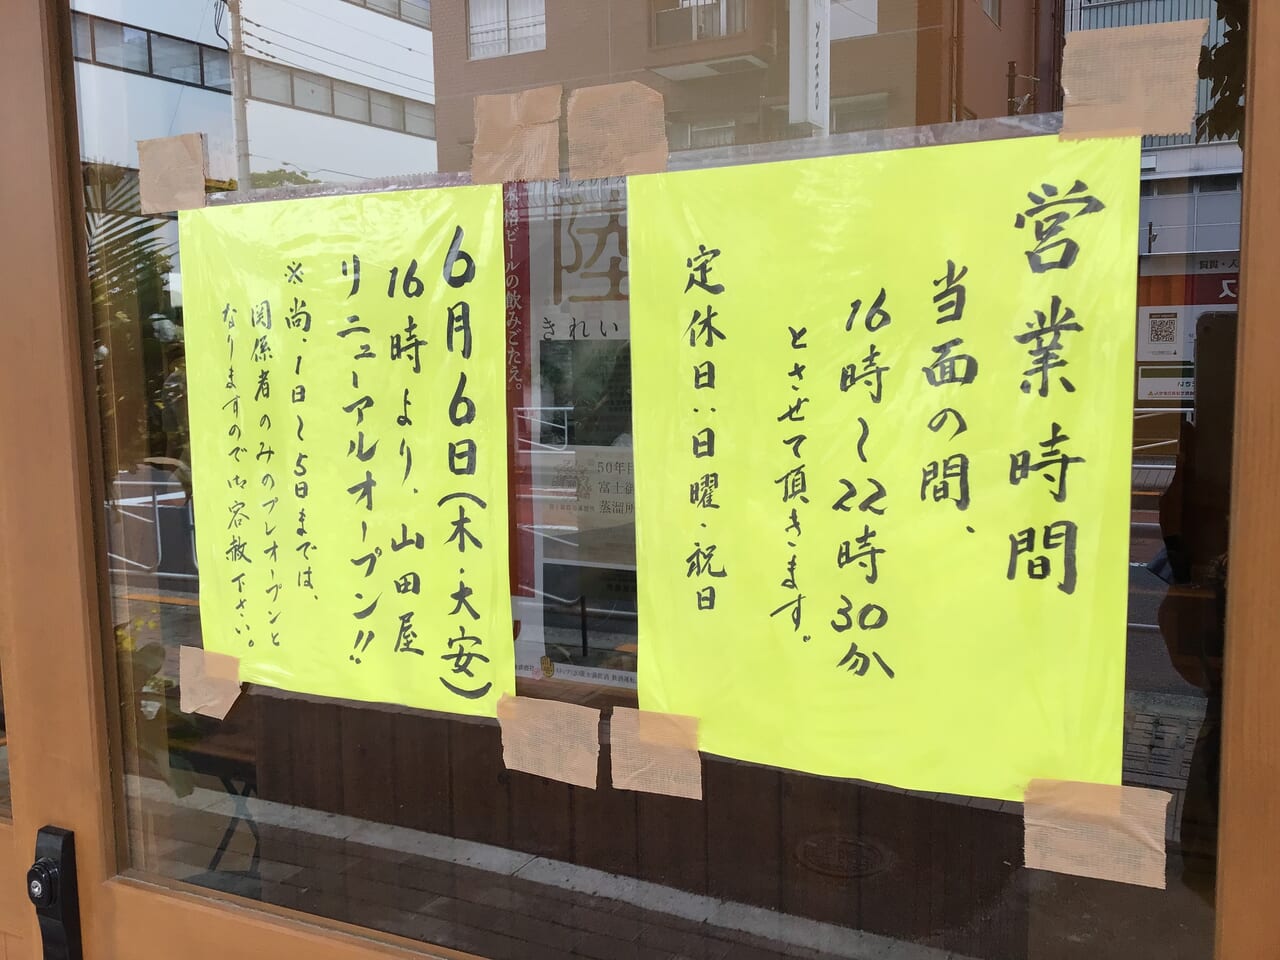 営業時間
当面の間、
16時~22時30分
とさせて頂きます。
定休日:日曜・祝日
6月6日(木・大安)
16時より、山田屋
リニューアルオープン!!
※尚、1日~5日までは、
関係者のみのプレオープンと
なりますので御容赦下さい。
本格ビールの飲みごたえ。
陸
きれい
50年目
富士御
蒸溜所